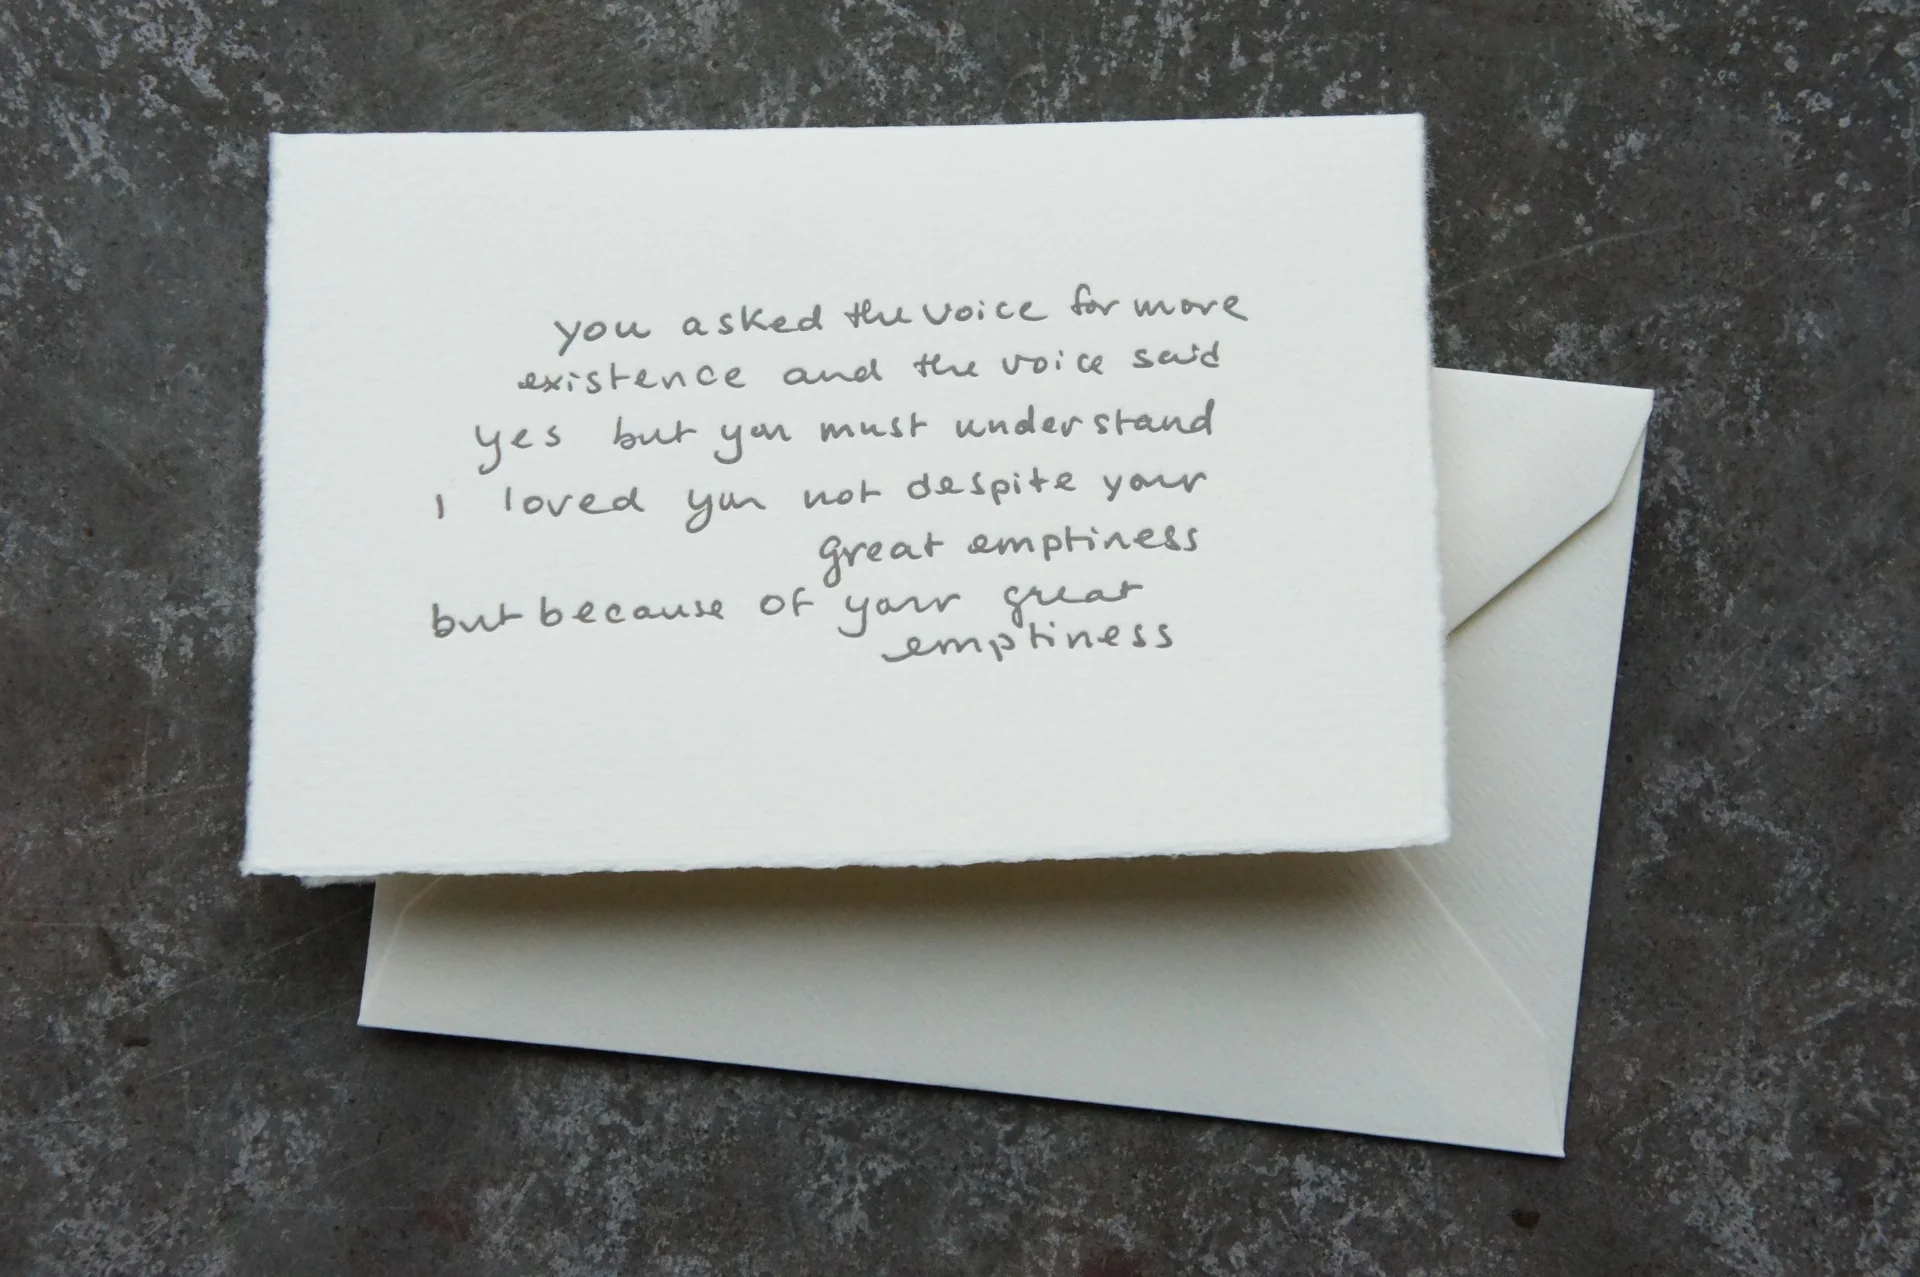 you asked the voice for more
existence and the voice said
yes but you must understand
I loved you not despite your
great emptiness
but because of your great
emptiness